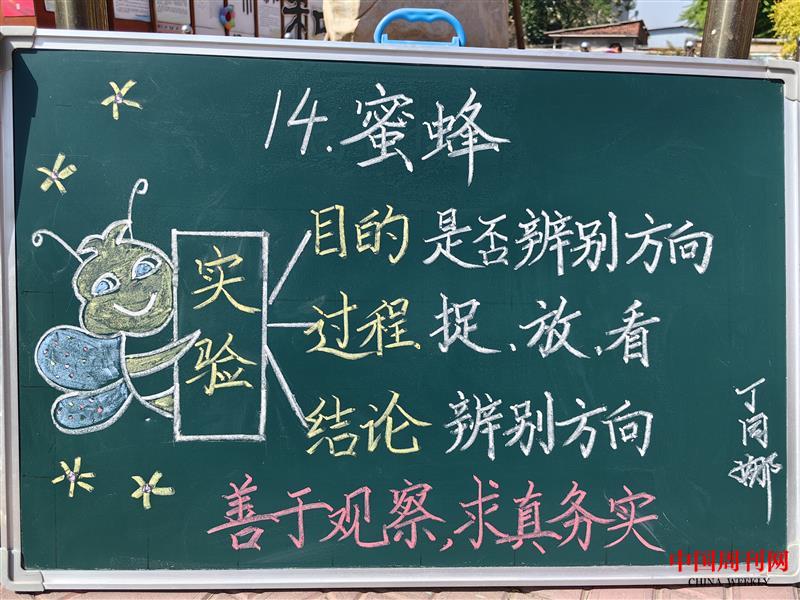 14.蜜蜂
实验
目的 是否辨别方向
过程 捉、放、看
结论 辨别方向
善于观察,求真务实
中国周刊网
CHINA WEEKLY